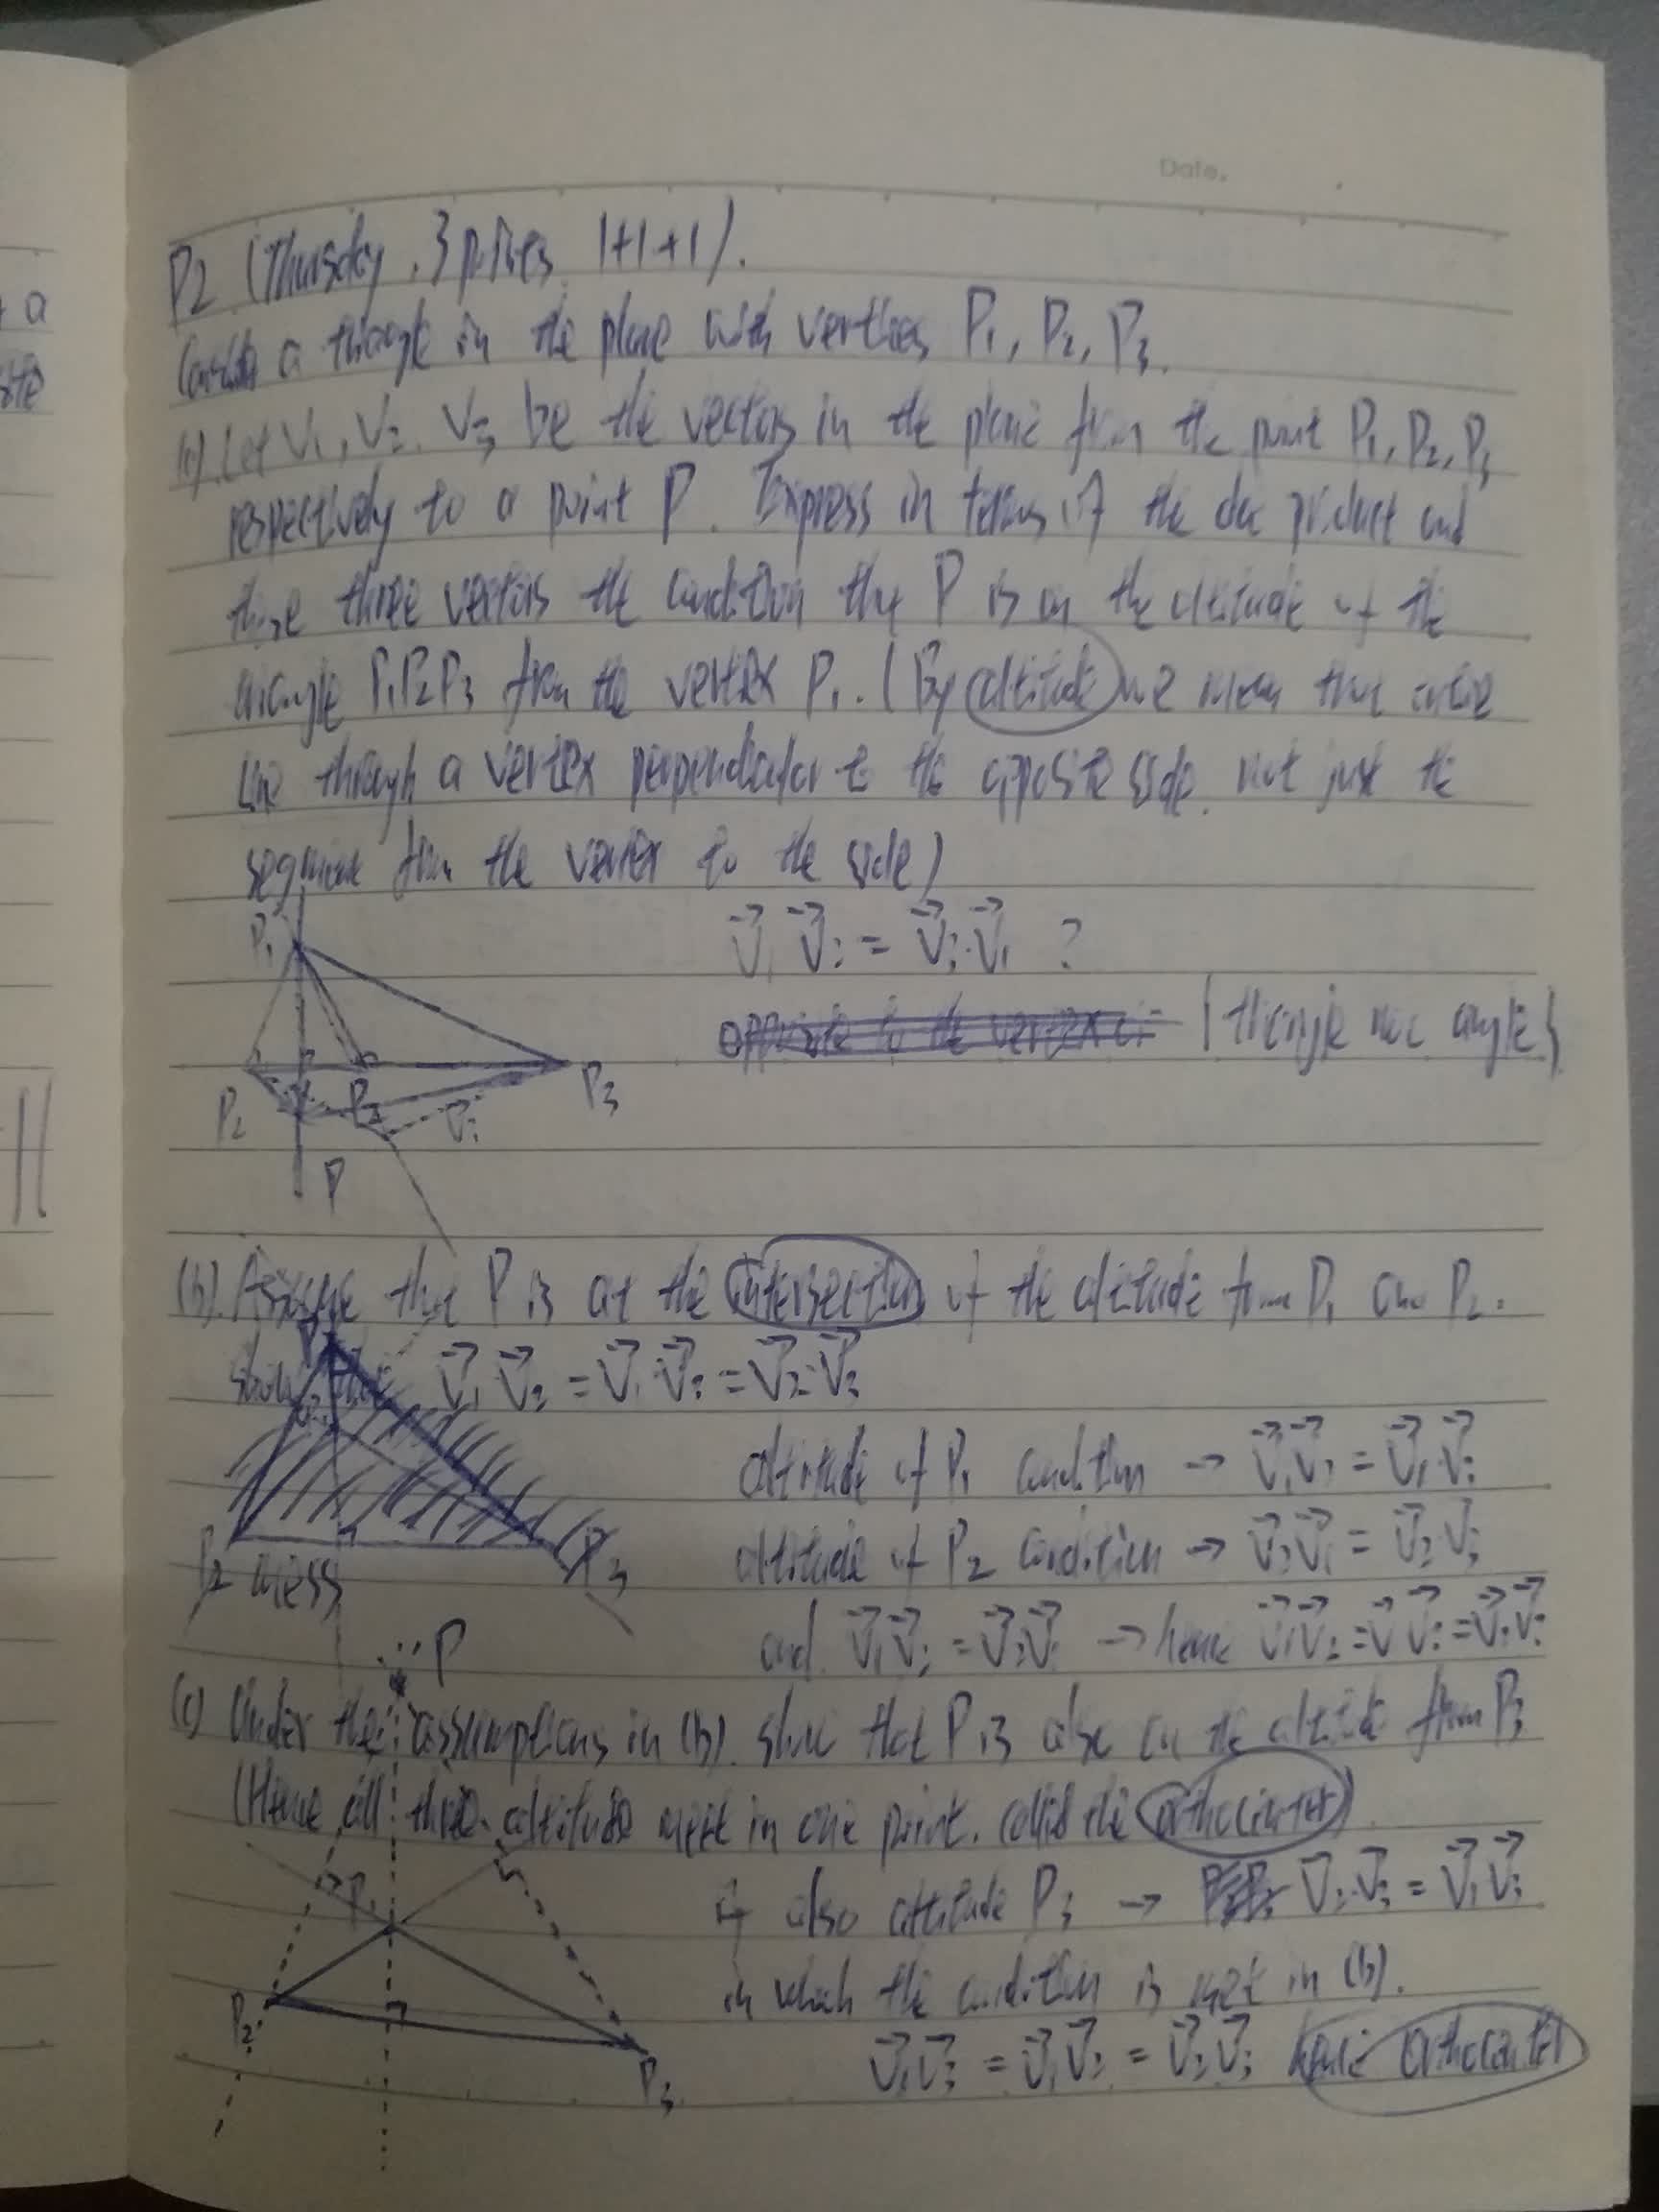 Date.
P2 (Thursday, 3 points, 1+1+1).
Consider a triangle in the plane with vertices P1, P2, P3.
(a) Let V1, V2, V3 be the vectors in the plane from the point P1, P2, P3
respectively to a point P. Express in terms of the dot product and
these three vectors the condition that P is on the altitude of the
triangle P1P2P3 from the vertex P1. (By altitude we mean that entire
line through a vertex perpendicular to the opposite side, not just the
segment from the vertex to the side)
P1
V1 V2 = V3·V1 ?
opposite to the vertex (triangle not angle)
P2 P2 V3 P3
P
(b) Assume that P is at the intersection of the altitude from P1 and P2.
show that V1 V2 = V1 V3 = V2·V3
altitude of P1 condition → V1V2 = V1·V3
altitude of P2 condition → V2V1 = V2·V3
P2 mess P3
and V1V2 = V2V1 → hence V1V2 = V V3 = V2·V3
P
(c) Under the assumptions in (b), show that P is also on the altitude from P3
(Hence all three altitude meet in one point, called the orthocenter)
P1
if also altitude P3 → V2·V3 = V1V3
in which the condition is met in (b).
P2
P3
V1V2 = V1V3 = V2V3 hence orthocenter